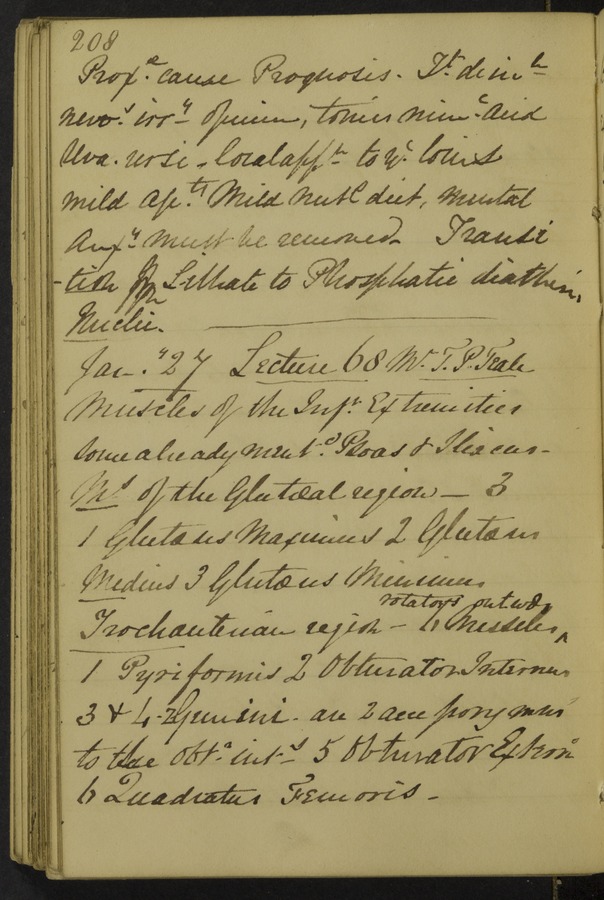 208
Prox.e cause Prognosis. Tt dimh
nervs irry opium, tonics minl acid
Uva. ursi. local appn to ye loins
mild apts. Mild nutl diet, mental
anxy must be removed. Transi
-tion from Lithate to Phosphatic diathesis
Jany. 27 Lecture 68 Mr. T. P. Teale
Muscles of the Infr Extremities
some already mentd. Psoas & Iliacus.
Ms of the Glutæal region — 3
1 Glutæus Maximus 2 Glutæus
Medius 3 Glutæus Minimus
rotators outwds
Trochanterian region - 6 Muscles
1 Pyriformis 2 Obturator Internus
3 & 4 Gemini. are 2 accessory mus
to the obtr ints 5 Obturator Extern
6 Quadratus Femoris -